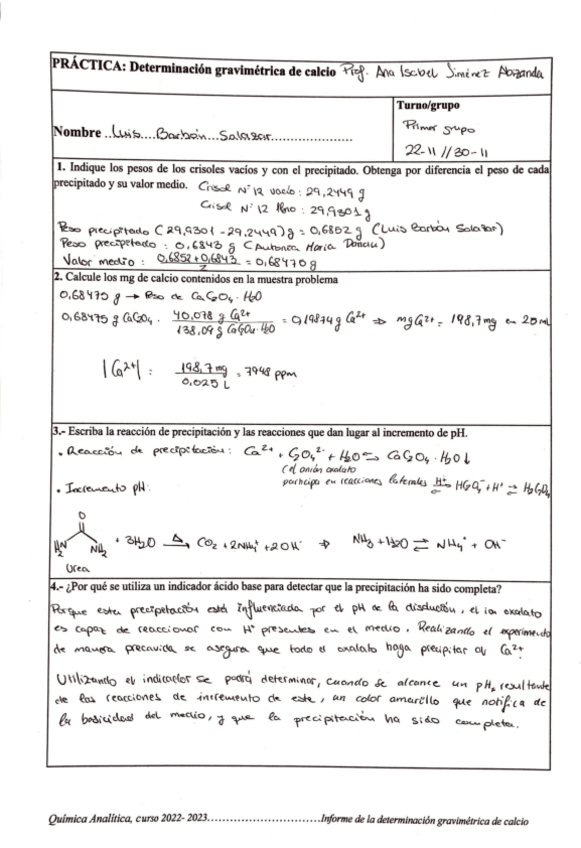 PRÁCTICA: Determinación gravimétrica de calcio Prof. Ana Isabel Jiménez Abizanda
Nombre ..Luis....Barbón...Salazar....................
Turno/grupo
Primer grupo
22-11 // 30-11
1. Indique los pesos de los crisoles vacíos y con el precipitado. Obtenga por diferencia el peso de cada
precipitado y su valor medio. Crisol Nº12 vacío: 29,2449 g
Crisol Nº 12 lleno: 29,9301 g
Peso precipitado (29,9301 - 29,2449) g = 0,6852 g (Luis Barbón Salazar)
Peso precipitado: 0,6843 g (Antonia Maria
Valor medio: 0,6852 + 0,6843 / 2 = 0,68470 g
2. Calcule los mg de calcio contenidos en la muestra problema
0,68475 g → Peso de CaC2O4 · H2O
0,68475 g CaC2O4 · 40,078 g Ca2+ / 138,09 g CaC2O4·H2O = 0,19874 g Ca2+ ⇒ mg Ca2+ = 198,7 mg en 25 mL
|Ca2+| : 198,7 mg / 0,025 L = 7948 ppm
3.- Escriba la reacción de precipitación y las reacciones que dan lugar al incremento de pH.
• Reacción de precipitación: Ca2+ + C2O4 2- + H2O ⇆ CaC2O4 · H2O ↓
(el anión oxalato
participa en reacciones laterales H+ ⇆ HC2O4- + H+ ⇌ H2C2O4
• Incremento pH:
O
H2N NH2 + 3H2O Δ→ CO2 + 2NH4+ + 2OH- ⇒ NH3 + H2O ⇌ NH4+ + OH-
Urea
4.- ¿Por qué se utiliza un indicador ácido base para detectar que la precipitación ha sido completa?
Porque esta precipitación está influenciada por el pH de la disolución, el ion oxalato
es capaz de reaccionar con H+ presentes en el medio. Realizando el experimento
de manera precavida se asegura que todo el oxalato haga precipitar al Ca2+
Utilizando el indicador se podrá determinar, cuando se alcance un pH, resultante
de las reacciones de incremento de este, un color amarillo que notifica de
la basicidad del medio, y que la precipitación ha sido completa.
Química Analítica, curso 2022- 2023..............................Informe de la determinación gravimétrica de calcio